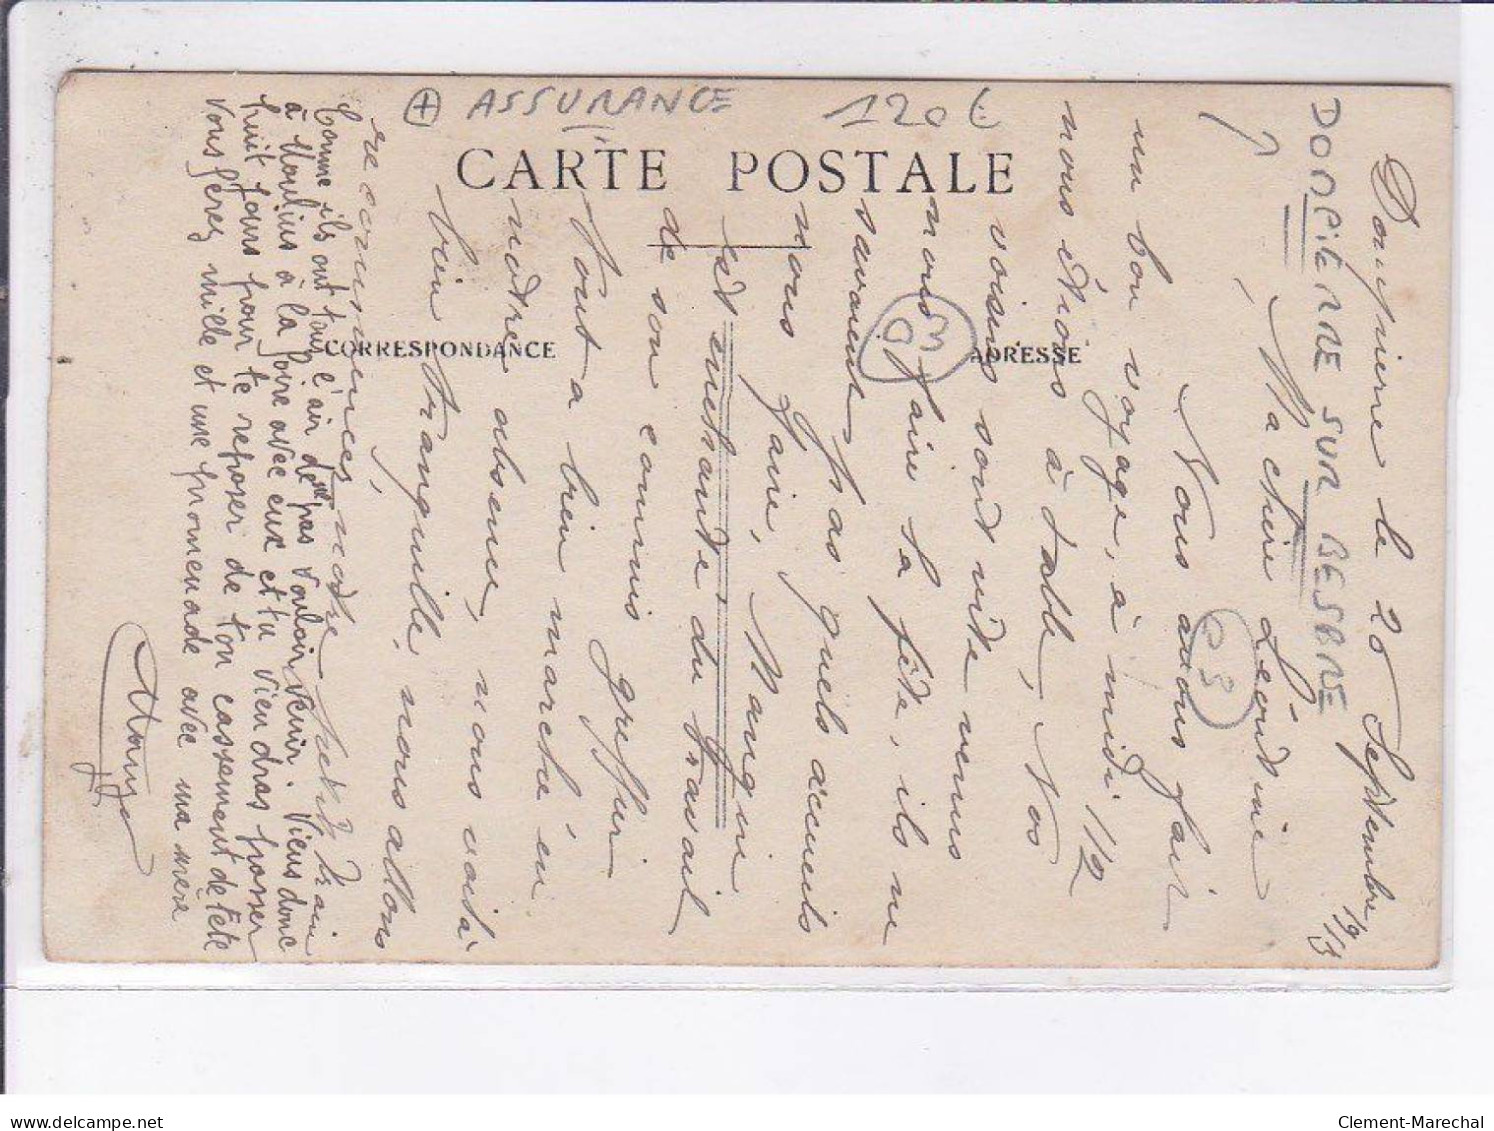 ⊕ ASSURANCE 120 €
CARTE POSTALE
CORRESPONDANCE
ADRESSE
DOMPIERRE SUR BESBRE
Dompierre le 20 Septembre 1913
Ma chère Léontine
Nous avons fait
un bon voyage, à midi 1/2
nous étions à table, Nos
voisins sont vite venus
nous faire la fête, ils ne
savaient pas quels accueils
nous faire, Manquin
est enchanté du travail
de son commis
tout a bien marché en
notre absence, nous voilà
bien tranquille, nous allons
notre petit train
Comme ils ont tous l'air de pas vouloir venir. Viens donc
à Moulins à la foire avec eux et tu viendras passer
huit jours pour te reposer de ton cassement de tête
Vous ferez mille et une promenade avec ma mère
delcampe.net
Clement-Marechal